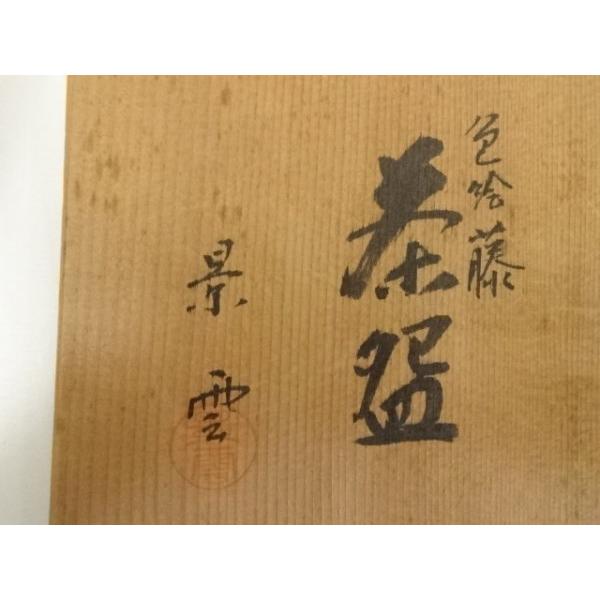 色絵藤
茶盌
景雲